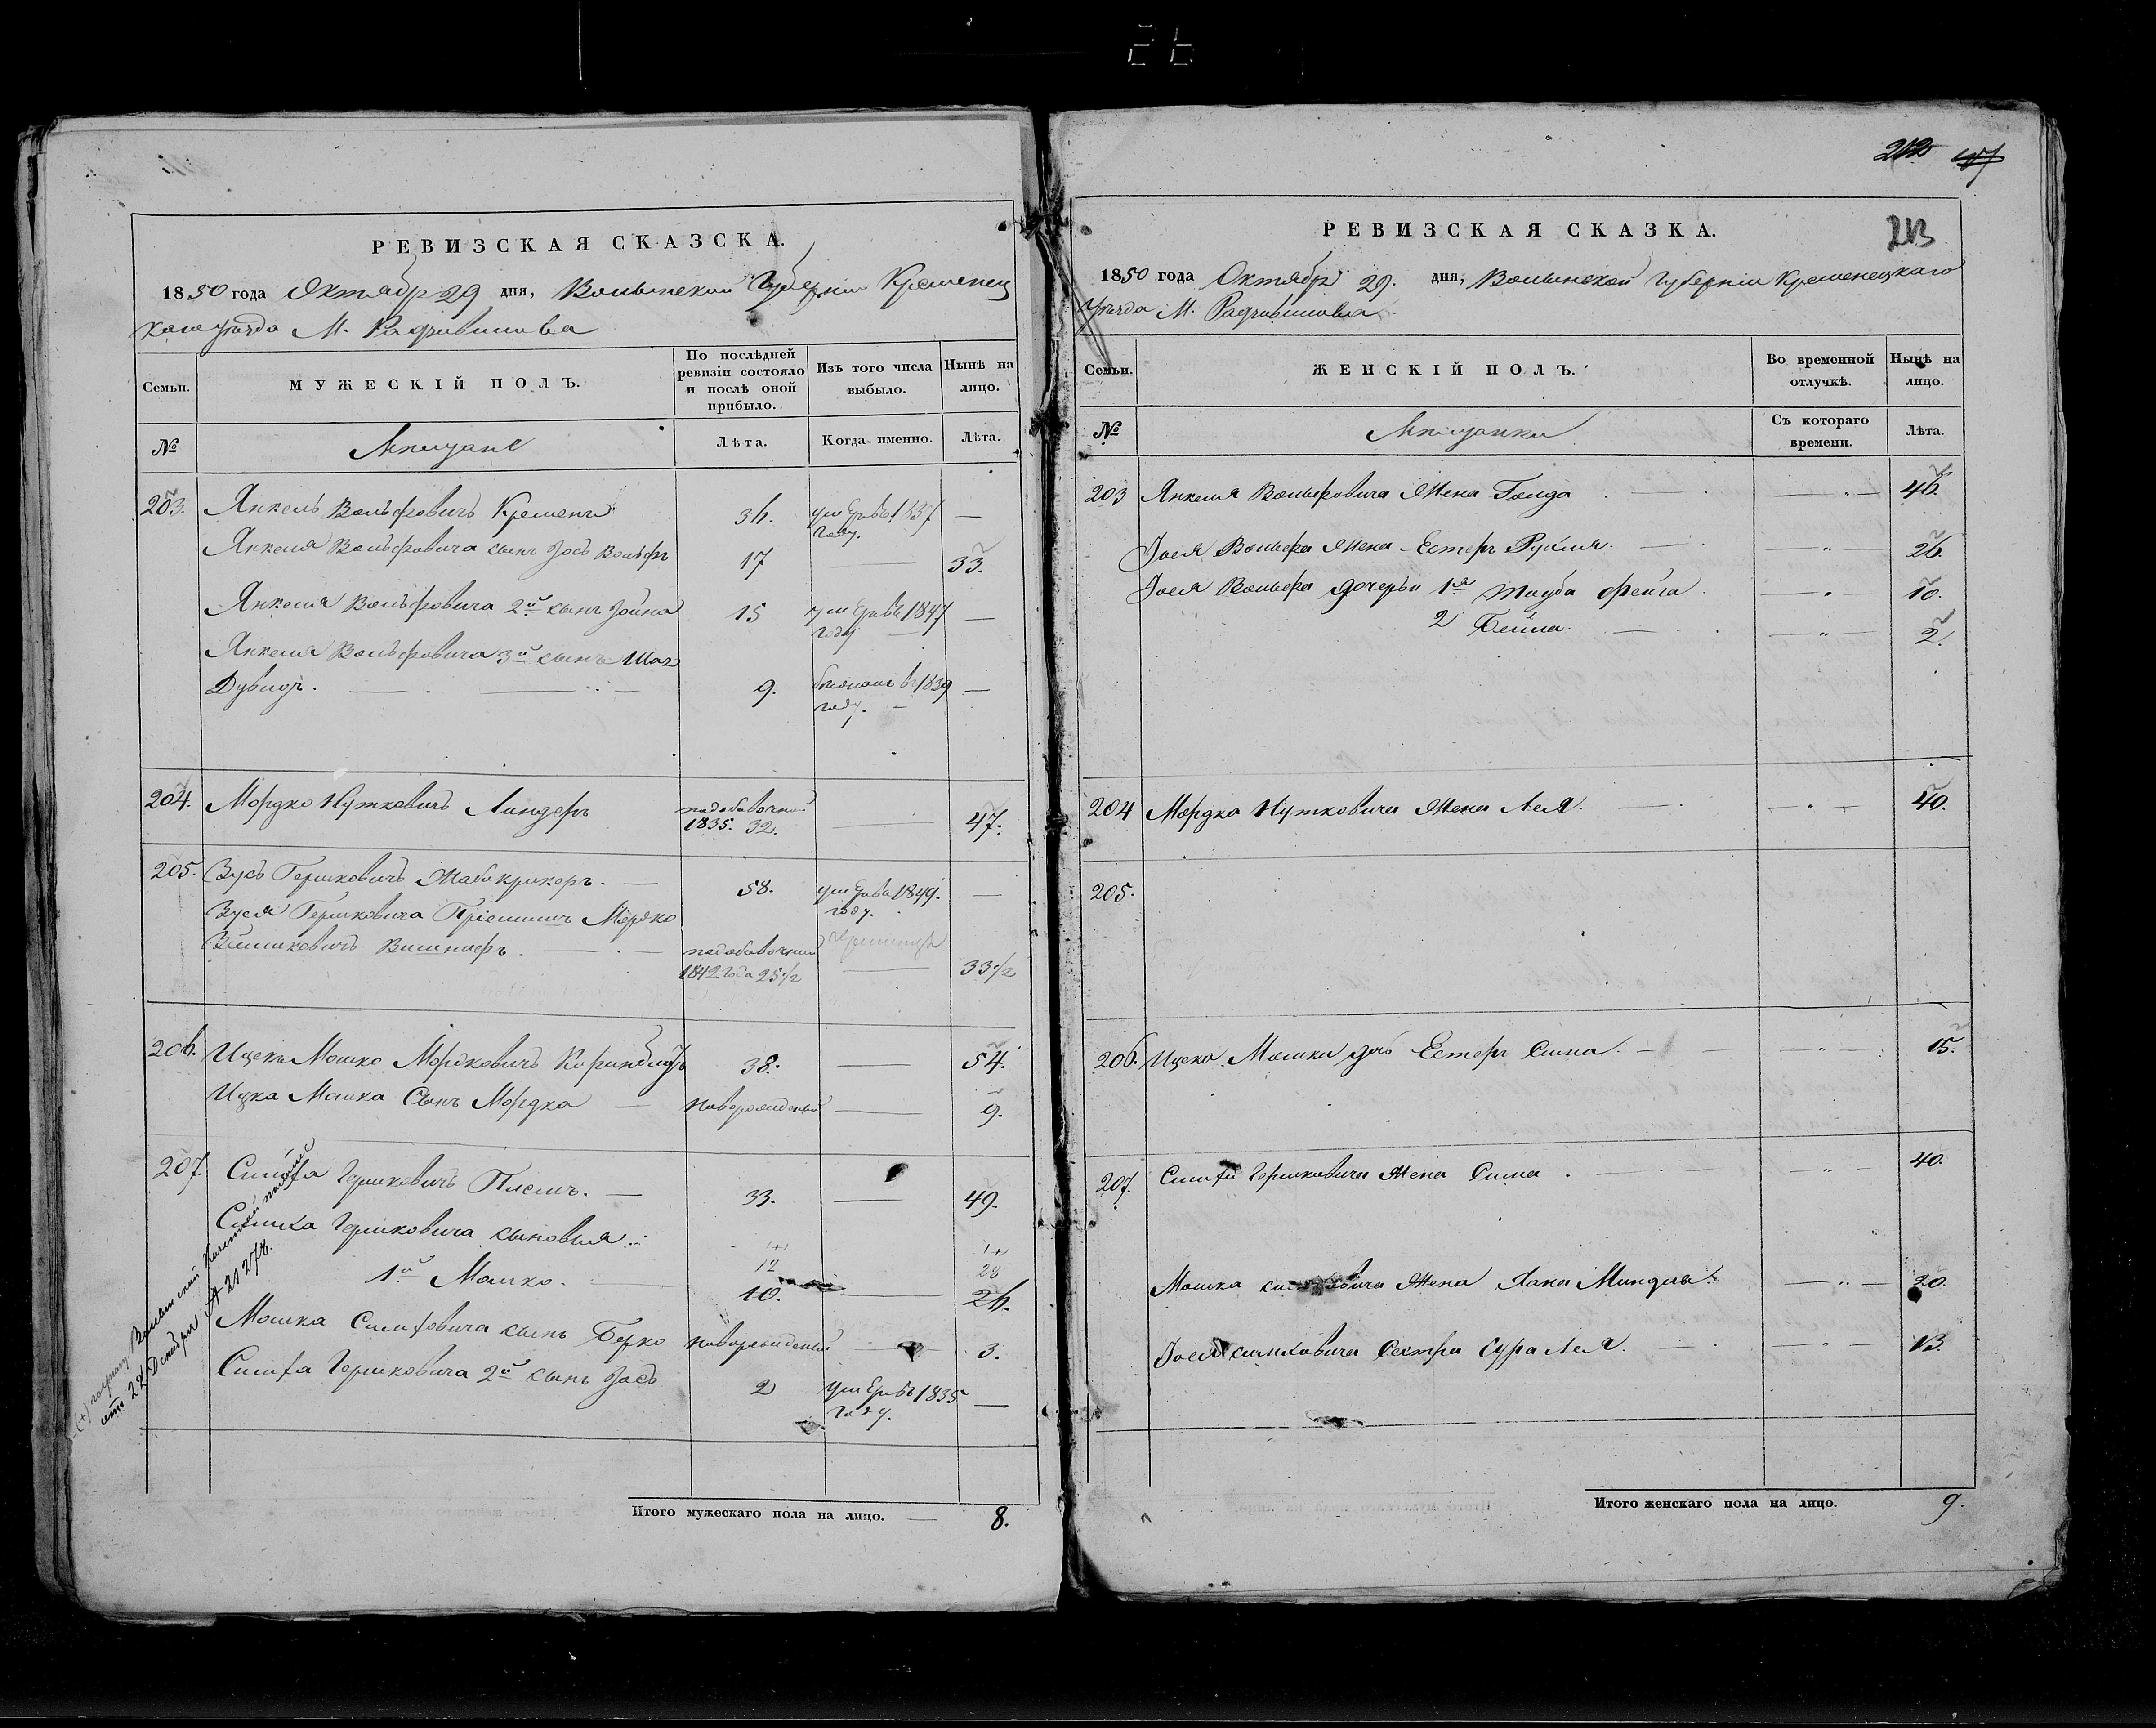 РЕВИЗСКАЯ СКАЗСКА.
1850 года Октября 29 дня, Волынской Губерніи Кременец
каго уѣзда М. Радзивилова
Семьи.
МУЖЕСКІЙ ПОЛЪ.
По послѣдней ревизіи состояло и послѣ оной прибыло.
Изъ того числа выбыло.
Нынѣ на лицо.
№
Мѣщане
Лѣта.
Когда именно.
Лѣта.
203. Янкель Вольфовичъ Кременъ 36. умеръ въ 1837 году. —
Янкеля Вольфовича сынъ Іось Вольфъ 17 — 33.
Янкеля Вольфовича 2й сынъ Іойна 15 умеръ въ 1847 году —
Янкеля Вольфовича 3й сынъ
9. въ 1839 году. —
204. Мордко Нутковичъ Ландеръ 1835. 32. — 47.
205. Зусь Гершковичъ Жабокрикеръ. — 58. умеръ въ 1849. году. —
Зуся Гершковича Пріемышъ Мордко
Вишнеръ. — 1842 года 25 1/2 — 33 1/2
206. Ицекъ Мошко Мордковичъ 38. — 54.
Ицка Мошка Сынъ Мордка — новорожденый — 9.
207. Гершковичъ — 33. — 49.
Гершковича сыновья:
12 28
1й Мошко. — 10. — 26.
Мошка сынъ Берко новорожденый — 3.
Гершковича 2й сынъ Іось 2 умеръ въ 1835 году. —
22 Декабря № 21274.
Итого мужескаго пола на лицо. — 8.
212
213
РЕВИЗСКАЯ СКАЗКА.
1850 года Октября 29. дня, Волынской Губерніи Кременецкаго
уѣзда М. Радзивилова
Семьи.
ЖЕНСКІЙ ПОЛЪ.
Во временной отлучкѣ.
Нынѣ на лицо.
№
Мѣщанки
Съ котораго времени.
Лѣта.
203 Янкеля Вольфовича Жена Голда — " — 46.
Іося Вольфа Жена Естеръ Рухля. — " — 26.
Іося Вольфа Дочери 1я Тауба Фейга — " — 10.
2 Бейла. — " — 2.
204 Мордка Нутковича Жена Лея. — " — 40.
205.
206. Ицека Мошки дочь Естеръ Сима. — " — 15.
207. Гершковича Жена Сима. — " — 40.
Мошка Жена Хана Миндля. — " — 20.
Іося Сестра Сура Лея. — " — 13.
Итого женскаго пола на лицо. 9.